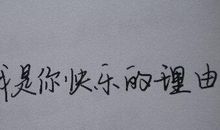 我是你快乐的理由